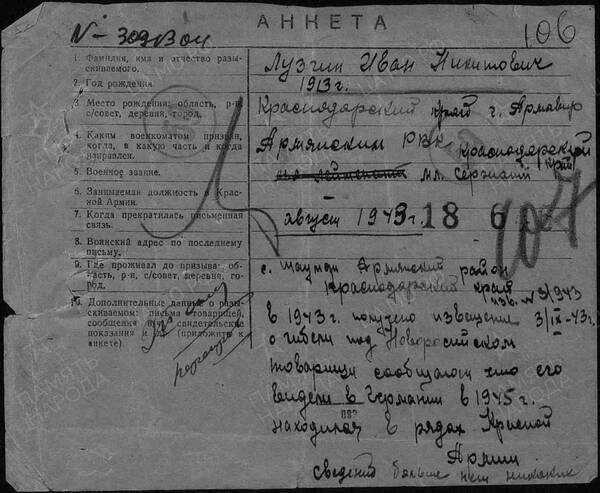 АНКЕТА
106
1. Фамилия, имя и отчество разы-
скиваемого.
Лузгин Иван Никитович
2. Год рождения.
1913 г.
3. Место рождения: область, р-н,
с/совет, деревня, город.
Краснодарский край г. Армавир
4. Каким военкоматом призван,
когда, в какую часть и когда
направлен.
Армянским РВК Краснодарский
край
5. Военное звание.
мл. сержант
6. Занимаемая должность в Крас-
ной Армии.
7. Когда прекратилась письменная
связь.
август 1943 г.
18 6
107
8. Воинский адрес по последнему
письму.
9. Где проживал до призыва: об-
ласть, р-н, с/совет, деревня, го-
род.
Армянский район
Краснодарский край
10. Дополнительные данные о разы-
скиваемом: письма товарищей,
сообщения или свидетельские
показания и др. (приложить к
анкете).
изв. № 9/943
в 1943 г. получено извещение 3/IX-43 г.
о гибели под Новоросийском
товарищи сообщают что его
видели в Германии в 1945 г.
находился в рядах Красной
Армии
сведений больше нет никаких
ПАМЯТЬ
НАРОДА